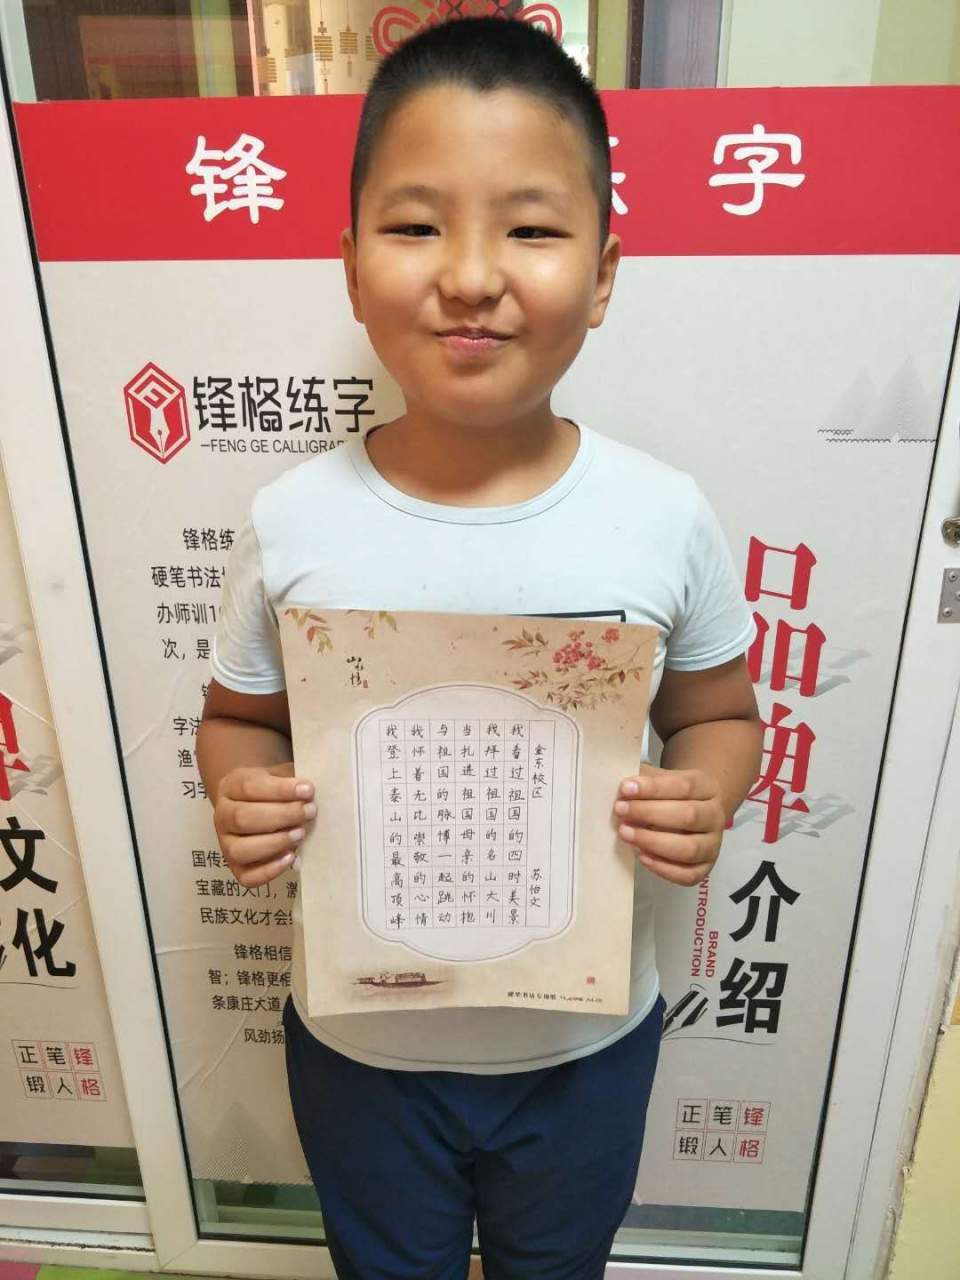 锋 字
锋格练字
FENG GE CALLIGRA
锋格练
硬笔书法
办师训1
次，是
字法
渔
习字
国传
宝藏的大门，激
民族文化才会
锋格相信
智；锋格更相
条康庄大道
风劲扬
金东校区 苏怡文
我看过祖国的四时美景
我拜过祖国的名山大川
当扎进祖国母亲的怀抱
与祖国的脉博一起跳动
我怀着无比崇敬的心情
我登上泰山的最高顶峰
品牌
介绍
BRAND
INTRODUCTION
正笔锋
锻人格
牌
文
化
正笔锋
锻人格